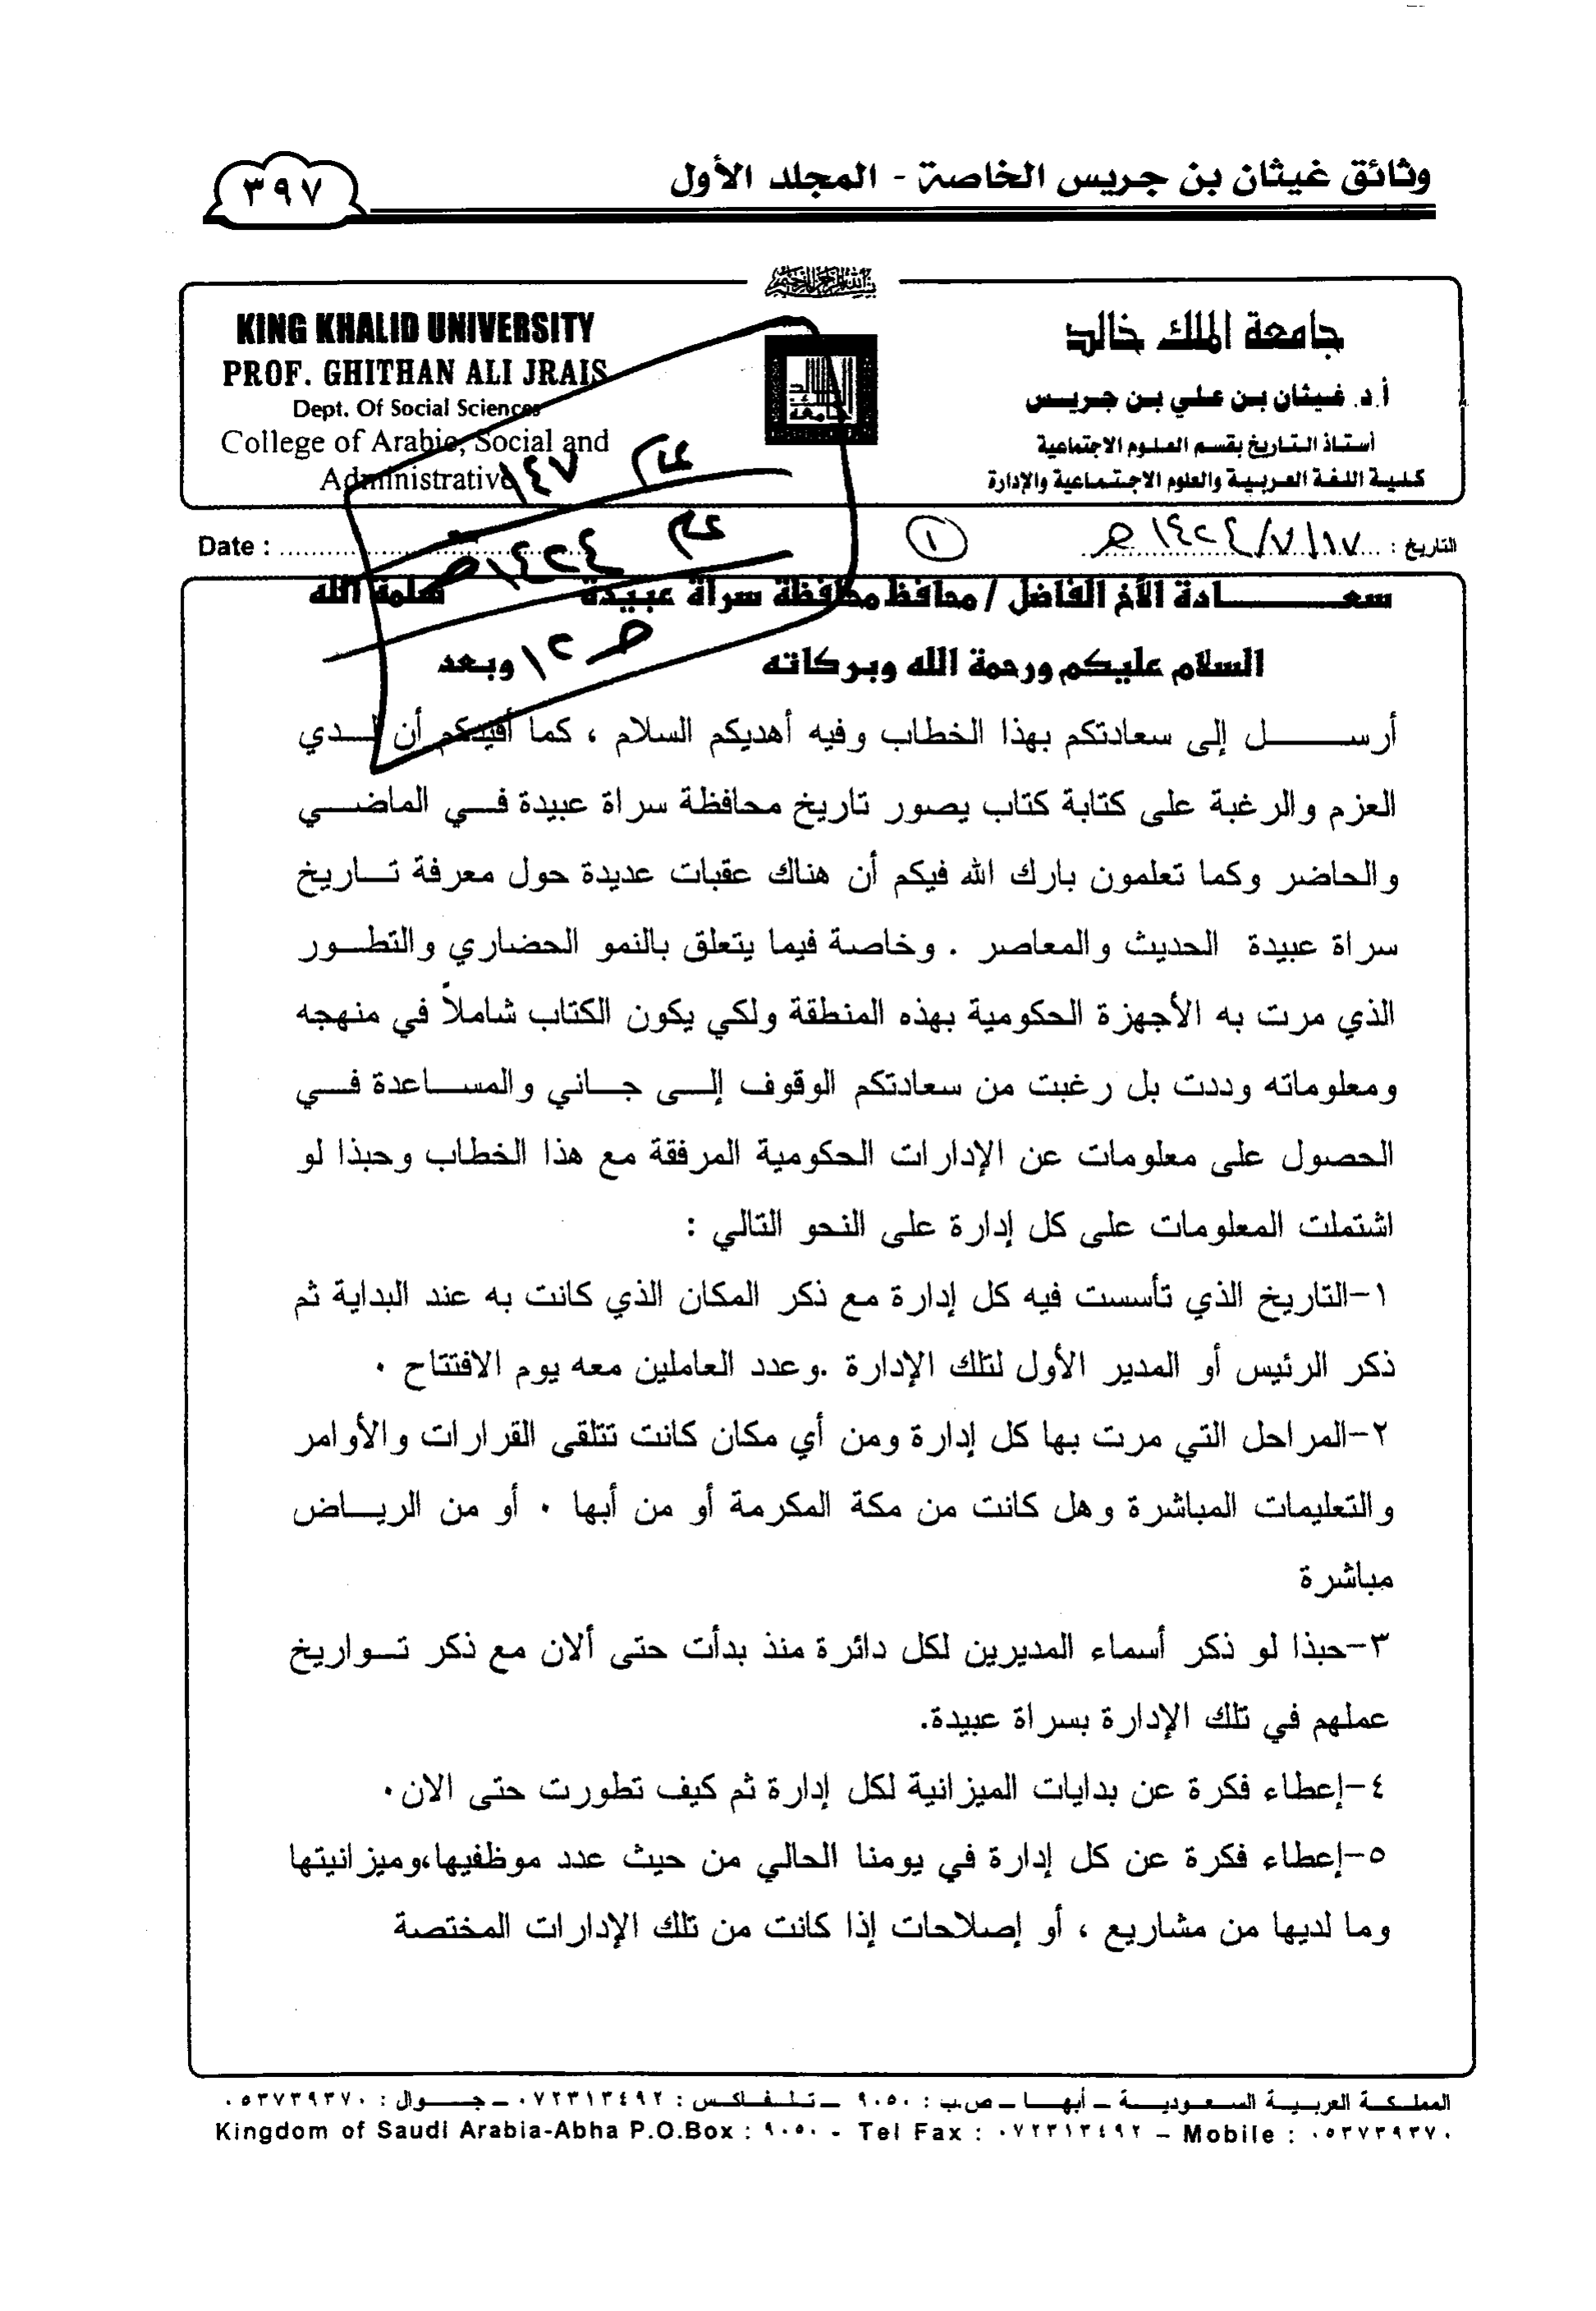 وثائق غيثان بن جريس الخاصة - المجلد الأول
٣٩٧
بسم الله الرحمن الرحيم
KING KHALID UNIVERSITY
PROF. GHITHAN ALI JRAIS
Dept. Of Social Sciences
College of Arabic, Social and
Administrative
جامعة الملك خالد
أ.د. غيثان بن علي بن جريس
أستاذ التاريخ بقسم العلوم الاجتماعية
كلية اللغة العربية والعلوم الاجتماعية والإدارة
جامعة الملك خالد
١٤٧
١٤٢٤
ص ١٢
Date : ........................
١
التاريخ : ١٤٢٤/٧/١٧ هـ
سعــــــادة الأخ الفاضل / محافظ محافظة سراة عبيدة سلمه الله
السلام عليكم ورحمة الله وبركاته وبعد
أرســـــل إلى سعادتكم بهذا الخطاب وفيه أهديكم السلام ، كما أفيدكم أن لـــدي
العزم والرغبة على كتابة كتاب يصور تاريخ محافظة سراة عبيدة فــي الماضــي
والحاضر وكما تعلمون بارك الله فيكم أن هناك عقبات عديدة حول معرفة تــاريخ
سراة عبيدة الحديث والمعاصر . وخاصة فيما يتعلق بالنمو الحضاري والتطــور
الذي مرت به الأجهزة الحكومية بهذه المنطقة ولكي يكون الكتاب شاملاً في منهجه
ومعلوماته وددت بل رغبت من سعادتكم الوقوف إلــى جــاني والمســاعدة فــي
الحصول على معلومات عن الإدارات الحكومية المرفقة مع هذا الخطاب وحبذا لو
اشتملت المعلومات على كل إدارة على النحو التالي :
١-التاريخ الذي تأسست فيه كل إدارة مع ذكر المكان الذي كانت به عند البداية ثم
ذكر الرئيس أو المدير الأول لتلك الإدارة .وعدد العاملين معه يوم الافتتاح ٠
٢-المراحل التي مرت بها كل إدارة ومن أي مكان كانت تتلقى القرارات والأوامر
والتعليمات المباشرة وهل كانت من مكة المكرمة أو من أبها ٠ أو من الريــاض
مباشرة
٣-حبذا لو ذكر أسماء المديرين لكل دائرة منذ بدأت حتى ألان مع ذكر تــواريخ
عملهم في تلك الإدارة بسراة عبيدة.
٤-إعطاء فكرة عن بدايات الميزانية لكل إدارة ثم كيف تطورت حتى الان٠
٥-إعطاء فكرة عن كل إدارة في يومنا الحالي من حيث عدد موظفيها،وميزانيتها
وما لديها من مشاريع ، أو إصلاحات إذا كانت من تلك الإدارات المختصة
المملكة العربية السعودية – أبها – ص.ب : ٩٠٥٠ – تلفاكس : ٠٧٢٣١٣٤٩٢ – جــوال : ٠٥٣٧٣٩٣٧٠
Kingdom of Saudi Arabia-Abha P.O.Box : ٩٠٥٠ - Tel Fax : ٠٧٢٣١٣٤٩٢ – Mobile : ٠٥٣٧٣٩٣٧٠